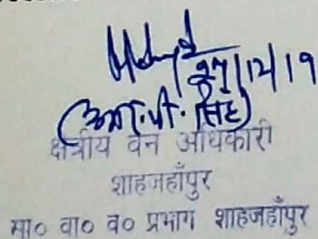 27/12/19
(आर.पी. सिंह)
क्षेत्रीय वन अधिकारी
शाहजहाँपुर
सा० वा० व० प्रभाग शाहजहाँपुर